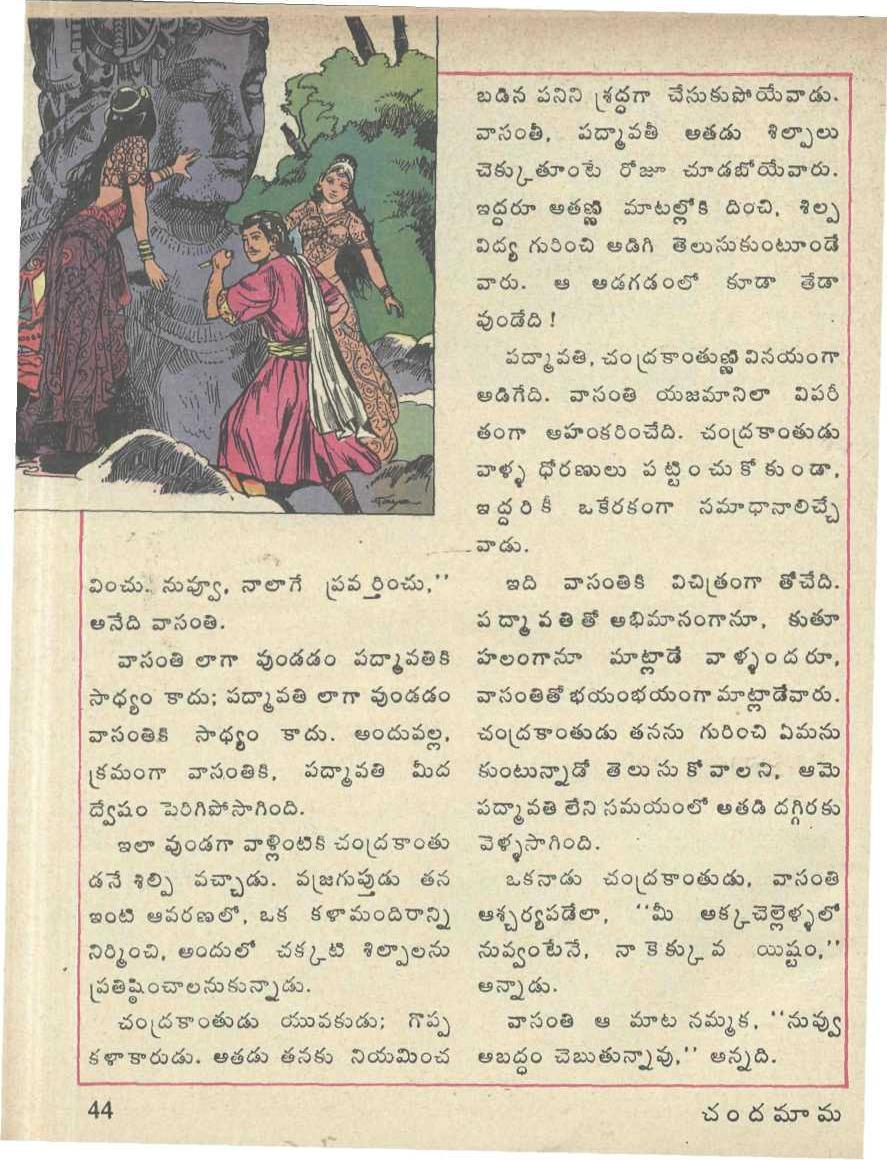 వించు. నువ్వూ, నాలాగే ప్రవర్తించు,''
అనేది వాసంతి.
వాసంతి లాగా వుండడం పద్మావతికి
సాధ్యం కాదు; పద్మావతి లాగా వుండడం
వాసంతికి సాధ్యం కాదు. అందువల్ల,
క్రమంగా వాసంతికి, పద్మావతి మీద
ద్వేషం పెరిగిపోసాగింది.
ఇలా వుండగా వాళ్లింటికి చంద్రకాంతు
డనే శిల్పి వచ్చాడు. వజ్రగుప్తుడు తన
ఇంటి ఆవరణలో, ఒక కళామందిరాన్ని
నిర్మించి, అందులో చక్కటి శిల్పాలను
ప్రతిష్ఠించాలనుకున్నాడు.
చంద్రకాంతుడు యువకుడు; గొప్ప
కళాకారుడు. అతడు తనకు నియమించ
బడిన పనిని శ్రద్ధగా చేసుకుపోయేవాడు.
వాసంతీ, పద్మావతీ అతడు శిల్పాలు
చెక్కుతూంటే రోజూ చూడబోయేవారు.
ఇద్దరూ అతణ్ణి మాటల్లోకి దించి, శిల్ప
విద్య గురించి అడిగి తెలుసుకుంటూండే
వారు. ఆ అడగడంలో కూడా తేడా
వుండేది !
పద్మావతి, చంద్రకాంతుణ్ణి వినయంగా
అడిగేది. వాసంతి యజమానిలా విపరీ
తంగా అహంకరించేది. చంద్రకాంతుడు
వాళ్ళ ధోరణులు పట్టించుకోకుండా,
ఇద్దరికీ ఒకేరకంగా సమాధానాలిచ్చే
వాడు.
ఇది వాసంతికి విచిత్రంగా తోచేది.
పద్మావతితో అభిమానంగానూ, కుతూ
హలంగానూ మాట్లాడే వాళ్ళందరూ,
వాసంతితో భయంభయంగా మాట్లాడేవారు.
చంద్రకాంతుడు తనను గురించి ఏమను
కుంటున్నాడో తెలుసుకోవాలని, ఆమె
పద్మావతి లేని సమయంలో అతడి దగ్గిరకు
వెళ్ళసాగింది.
ఒకనాడు చంద్రకాంతుడు, వాసంతి
ఆశ్చర్యపడేలా, ''మీ అక్కచెల్లెళ్ళలో
నువ్వంటేనే, నా కెక్కువ యిష్టం,''
అన్నాడు.
వాసంతి ఆ మాట నమ్మక, ''నువ్వు
అబద్ధం చెబుతున్నావు,'' అన్నది.
44
చందమామ